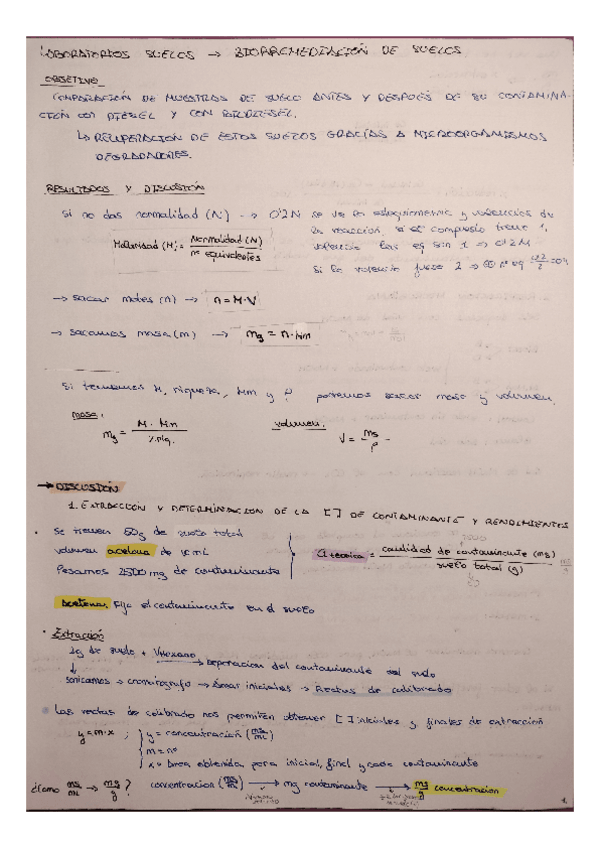 LABORATORIOS SUELOS → BIORREMEDIACIÓN DE SUELOS
OBJETIVO
COMPARACIÓN DE MUESTRAS DE SUELO ANTES Y DESPUÉS DE SU CONTAMINA-
CIÓN CON DIESEL Y CON BIODIESEL.
↳ RECUPERACIÓN DE ESTOS SUELOS GRACIAS A MICROORGANISMOS
DEGRADADORES.
RESULTADOS Y DISCUSIÓN
Si nos das normalidad (N) → 0'2N se ve la estequiometría y valencia de
la reacción, si el compuesto tiene 1,
Molaridad (M) = Normalidad (N) / nº equivalentes
valencia las eq sin 1 => 0'2M
Si la valencia fuese 2 =>
→ sacar moles (n) → n = M·V
→ sacamos masa (m) → mg = n·Mm
Si tenemos M, riqueza, Mm y ρ podemos sacar masa y volumen.
masa: volumen:
mg = M·Mm / %riq. V = mg / ρ
→ DISCUSIÓN
1. EXTRACCIÓN Y DETERMINACIÓN DE LA [ ] DE CONTAMINANTE Y RENDIMIENTOS
• Se tienen 50g de suelo total
volumen acetona de 10mL
Pesamos 2500 mg de contaminante
C teórica = cantidad de contaminante (mg) / suelo total (g) mg/g
Acetona: Fija el contaminante en el suelo
• Extracción
2g de suelo + VHexano → Separación del contaminante del suelo
↓
sonicamos → cromatógrafo → Sacar iniciales → Rectas de calibrado
• Las rectas de calibrado nos permiten obtener [ ] iniciales y finales de extracción
y = m·x ; y = concentración (mg/mL)
m = nº
x = área obtenida para inicial, final y cada contaminante
¿Como mg/mL → mg/g ? concentración (mg/mL) → mg contaminante → mg/g concentración
1.